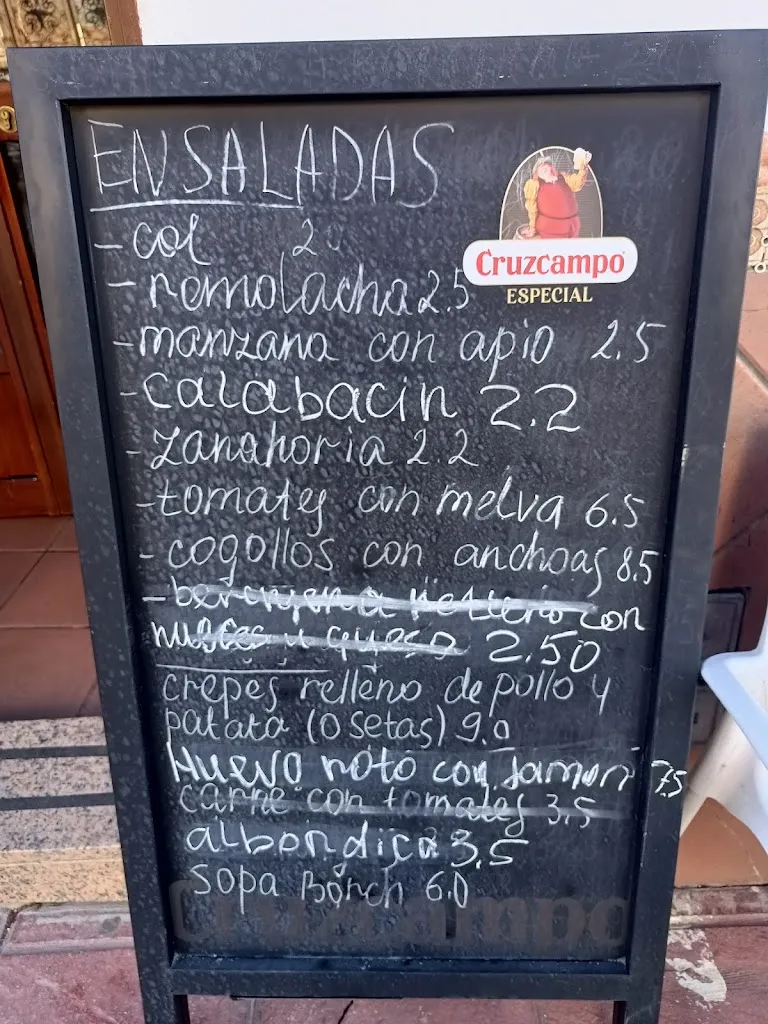 ENSALADAS
- col 20
Cruzcampo
ESPECIAL
- remolacha 2.5
- manzana con apio 2.5
- calabacin 2.2
- zanahoria 2.2
- tomates con melva 6.5
- cogollos con anchoas 8.5
- berenjena relleno con
nueces y queso 2.50
crepes relleno de pollo y
patata (o setas) 9.0
Huevo roto con jamon 7.5
carne con tomates 3.5
albondiga 3.5
sopa Borch 6.0
Cruzcampo